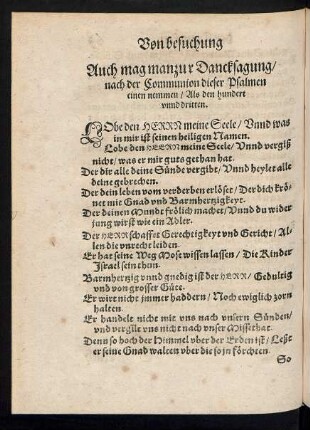 Von besuchung
Auch mag man zur Dancksagung/
nach der Communion dieser Psalmen
einen nemmen/ Als den hundert
vnnd dritten.
LObe den HERRN meine Seele/ Vnnd was
in mir ist seinen heiligen Namen.
Lobe den HERRN meine Seele/ Vnnd vergiß
nicht/ was er mir guts gethan hat.
Der dir alle deine Sünde vergibt/ Vnnd heylet alle
deine gebrechen.
Der dein leben vom verderben erlöset/ Der dich krö-
net mit Gnad vnd Barmhertzigkeyt.
Der deinen Mundt frölich machet/ Vnnd du wider
jung wirst wie ein Adler.
Der HERR schaffet Gerechtigkeyt vnd Gericht/ Al-
len die vnrecht leiden.
Er hat seine Weg Mose wissen lassen/ Die Kinder
Israel sein thun.
Barmhertzig vnnd gnedig ist der HERR/ Gedultig
vnd von grosser Güte.
Er wirt nicht jmmer haddern/ Noch ewiglich zorn
halten.
Er handelt nicht mit vns nach vnsern Sünden/
vnd vergilt vns nicht nach vnser Missethat.
Denn so hoch der Himmel vber der Erden ist/ Leßt
er seine Gnad walten vber die so jn förchten.
So